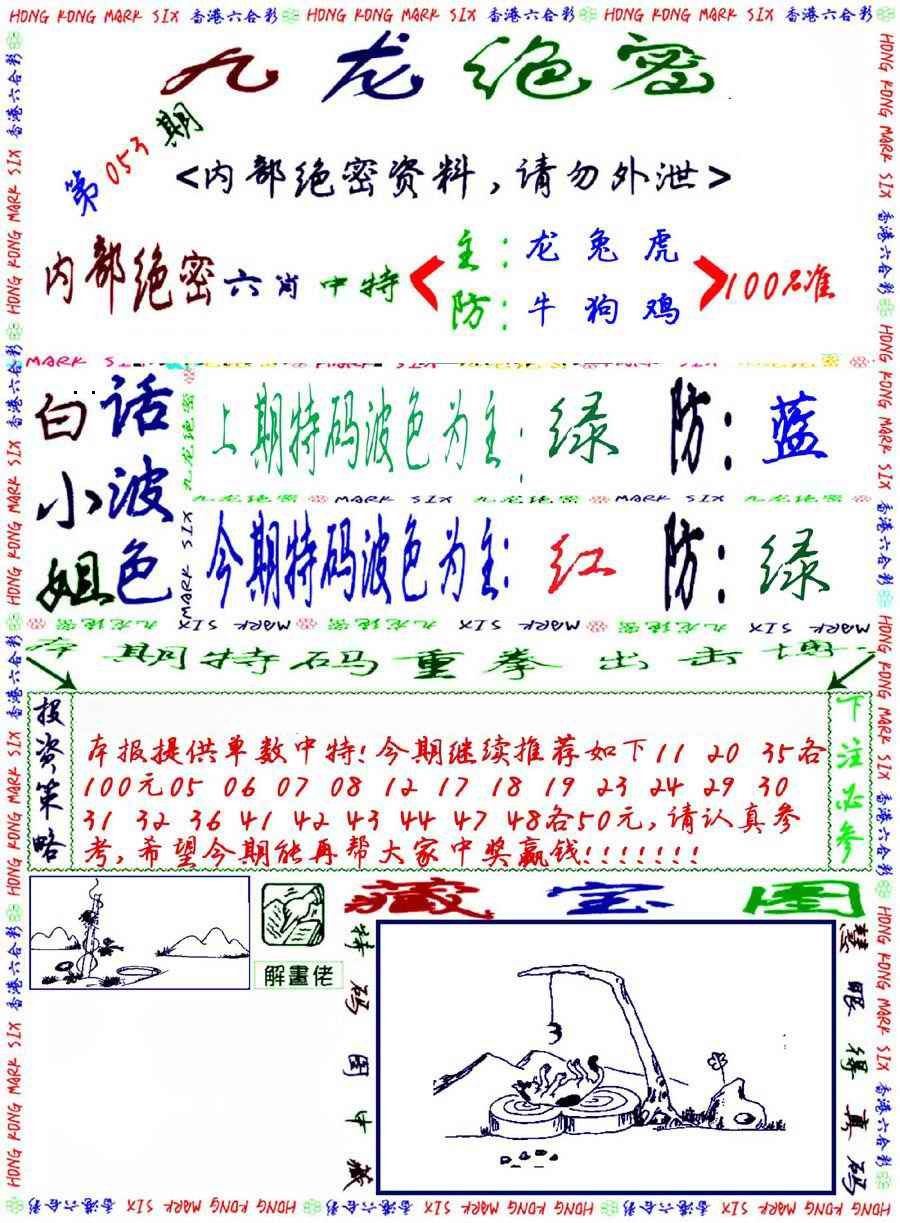 HONG KONG MARK SIX 香港六合彩 HONG KONG MARK SIX 香港六合彩 HONG KONG MARK SIX 香港六合彩
九龙绝密
第053期
<内部绝密资料,请勿外泄>
内部绝密六肖中特
主:龙兔虎
防:牛狗鸡
100%准
白话小姐
波色
上期特码波色为主:绿 防:蓝
九龙绝密 MARK SIX 九龙绝密 MARK SIX 九龙绝密
今期特码波色为主:红 防:绿
九龙绝密 MARK SIX 九龙绝密 MARK SIX 九龙绝密 MARK SIX
本期特码重拳出击博
投资策略
本报提供单数中特!今期继续推荐如下11 20 35各
100元05 06 07 08 12 17 18 19 23 24 29 30
31 32 36 41 42 43 44 47 48各50元,请认真参
考,希望今期能再帮大家中奖赢钱!!!!!!!
下注必参
解畫佬
藏宝图
特码图中藏
慧眼得真码
HONG KONG MARK SIX 香港六合彩 HONG KONG MARK SIX 香港六合彩 HONG KONG MARK SIX 香港六合彩